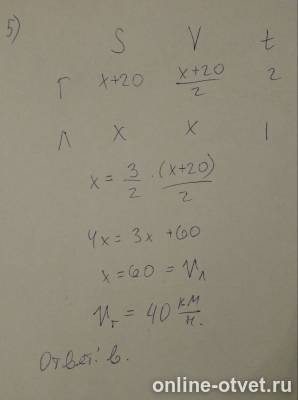 5)
S V t
Г x+20 x+20/2 2
Л x x 1
x = 3/2 · (x+20)/2
4x = 3x + 60
x = 60 = Vл
Vг = 40 км/ч.
Ответ: в.
online-otvet.ru